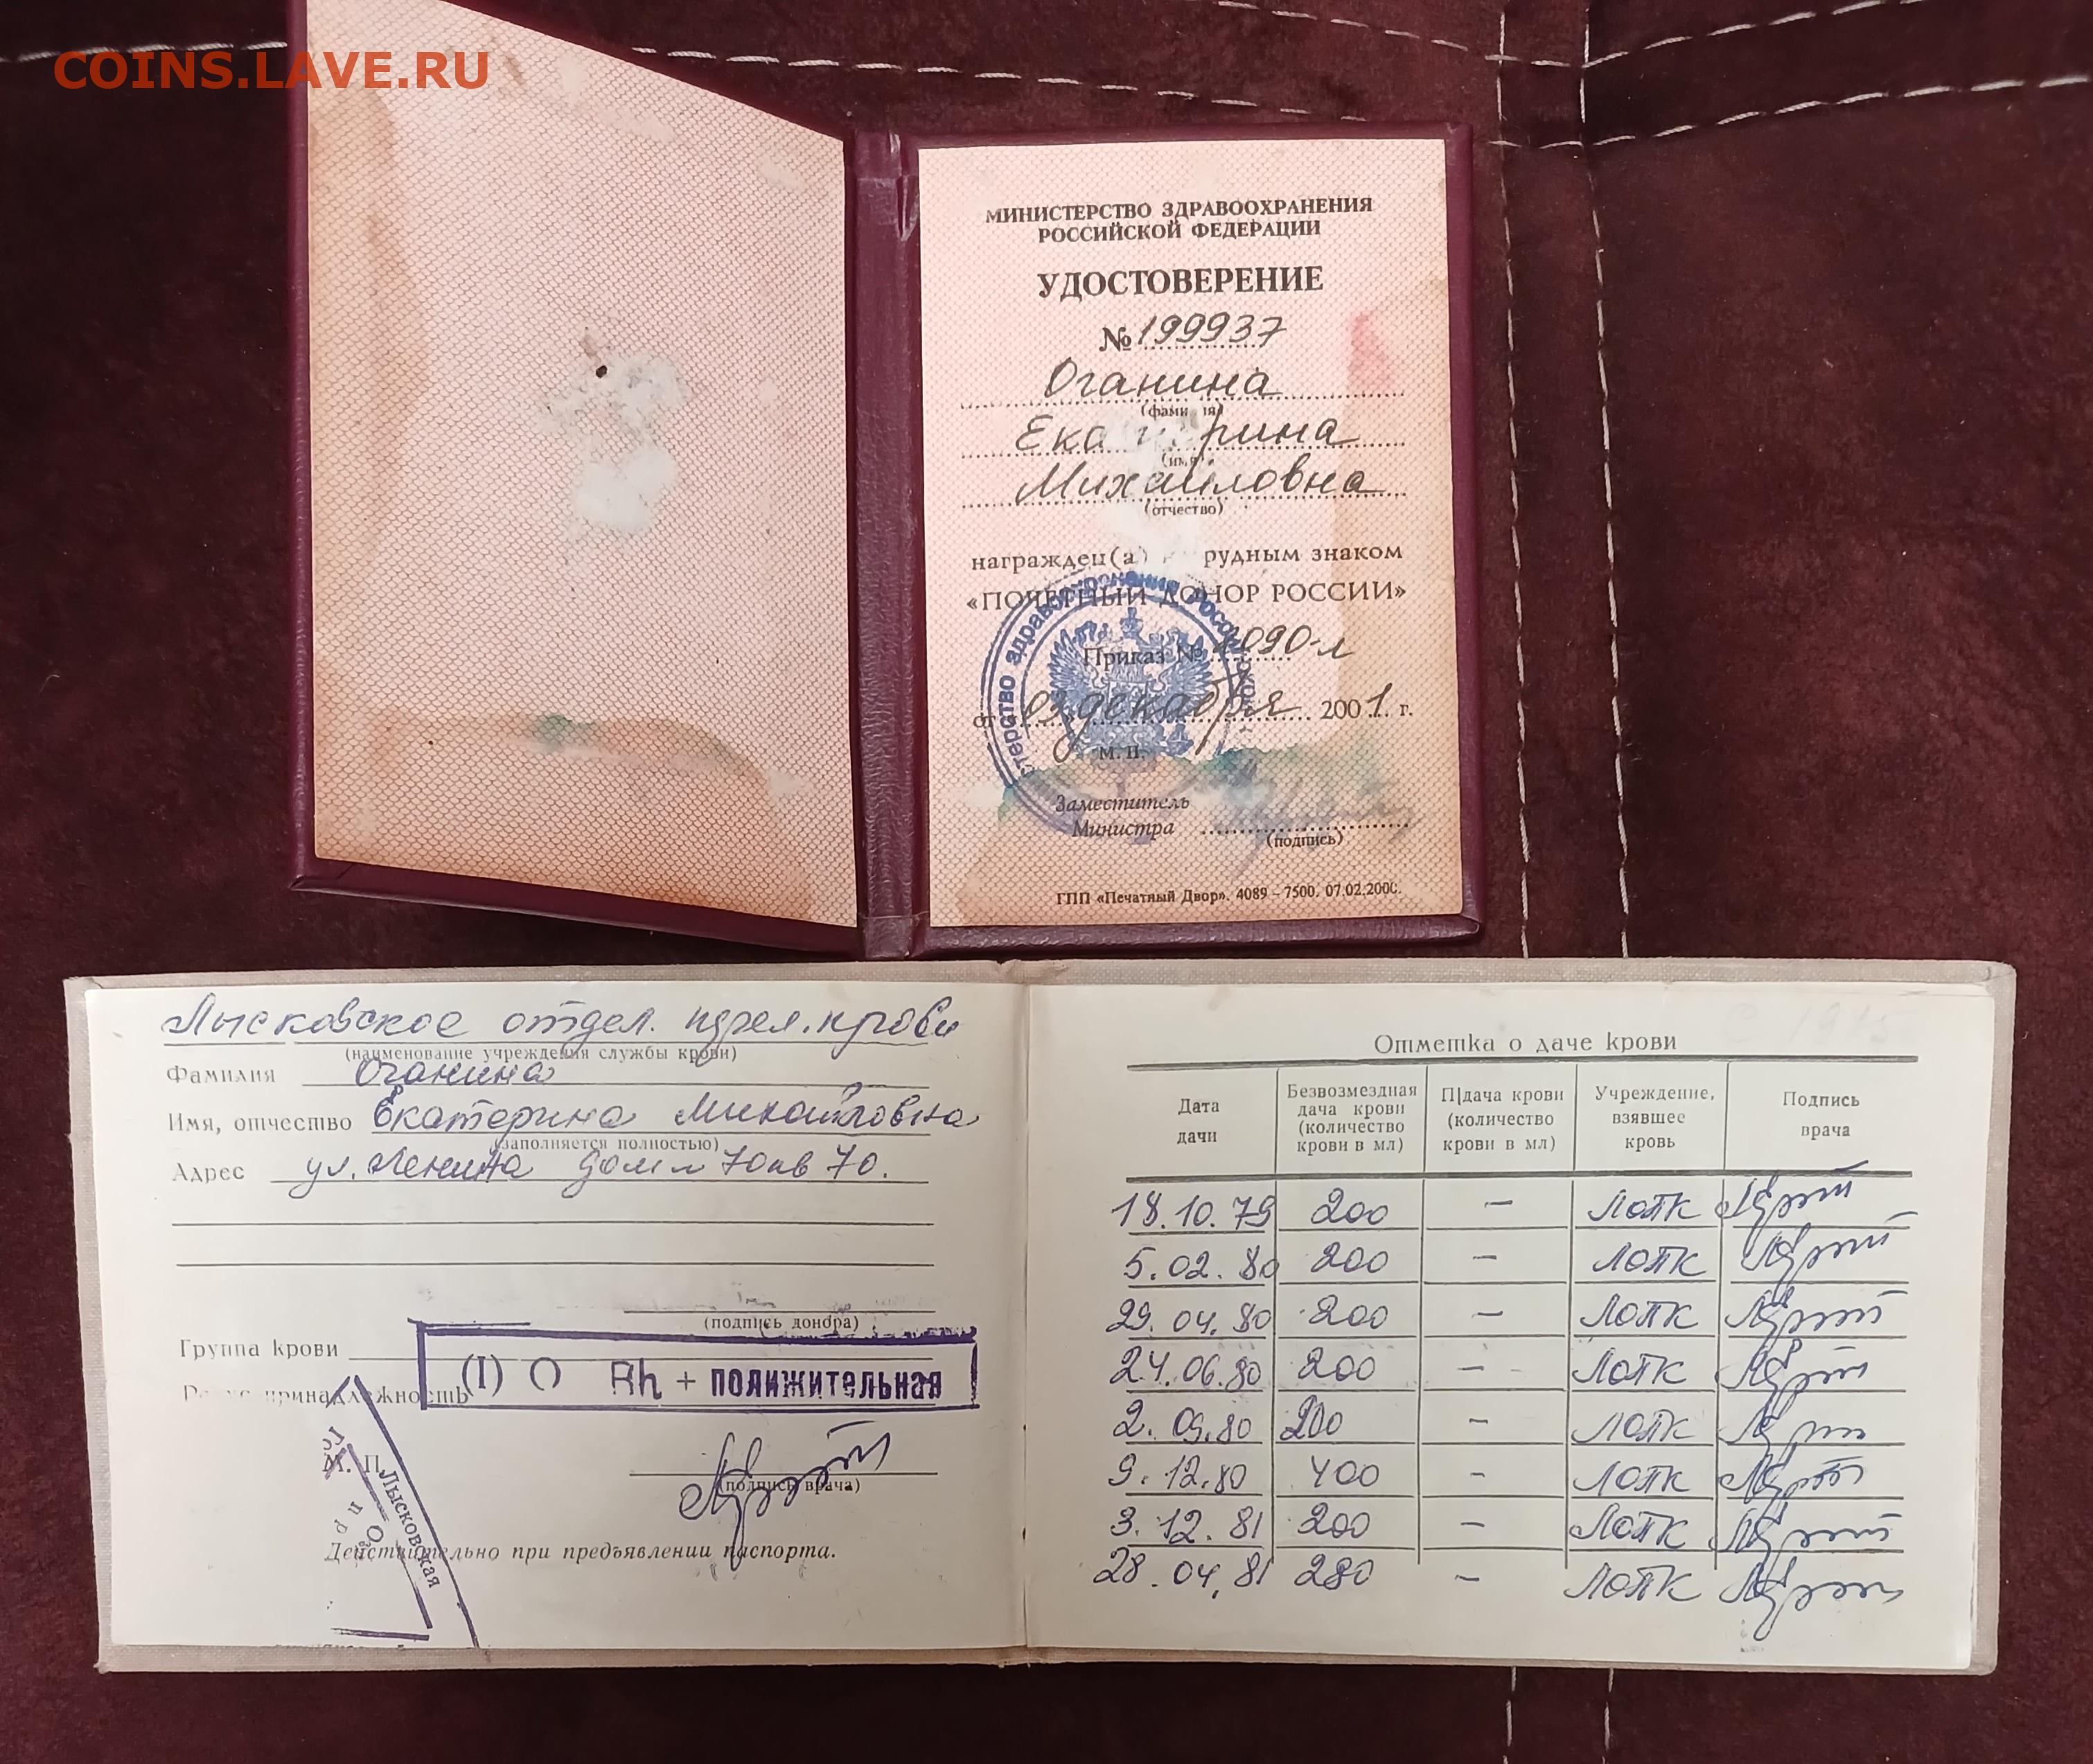 COINS.LAVE.RU
МИНИСТЕРСТВО ЗДРАВООХРАНЕНИЯ
РОССИЙСКОЙ ФЕДЕРАЦИИ
УДОСТОВЕРЕНИЕ
№ 199937
Оганина
(фами ия)
Ека рина
(имя)
Михайловна
(отчество)
награждец(а) рудным знаком
«ПОЧЕТНЫЙ ДОНОР РОССИИ»
Приказ № 1090-л
от 03 декабря 2001 г.
М. П.
Заместитель
Министра
(подпись)
ГПП «Печатный Двор». 4089 – 7500. 07.02.2000.
Лысковское отдел. перел. крови
(наименование учреждения службы крови)
Фамилия Оганина
Имя, отчество Екатерина Михайловна
(заполняется полностью)
Адрес ул. Ленина дом 70 кв 70.
(подпись донора)
Группа крови
(I) O Rh + полижительная
М. П.
Лысковская
(подпись врача)
Действительно при предъявлении паспорта.
Отметка о даче крови
Дата дачи Безвозмездная дача крови (количество крови в мл) П|дача крови (количество крови в мл) Учреждение, взявшее кровь Подпись врача
18.10.79 200 – ЛОПК
5.02.80 200 – ЛОПК
29.04.80 200 – ЛОПК
24.06.80 200 – ЛОПК
2.09.80 200 – ЛОПК
9.12.80 400 – ЛОПК
3.12.81 200 – ЛОПК
28.04.81 280 – ЛОПК